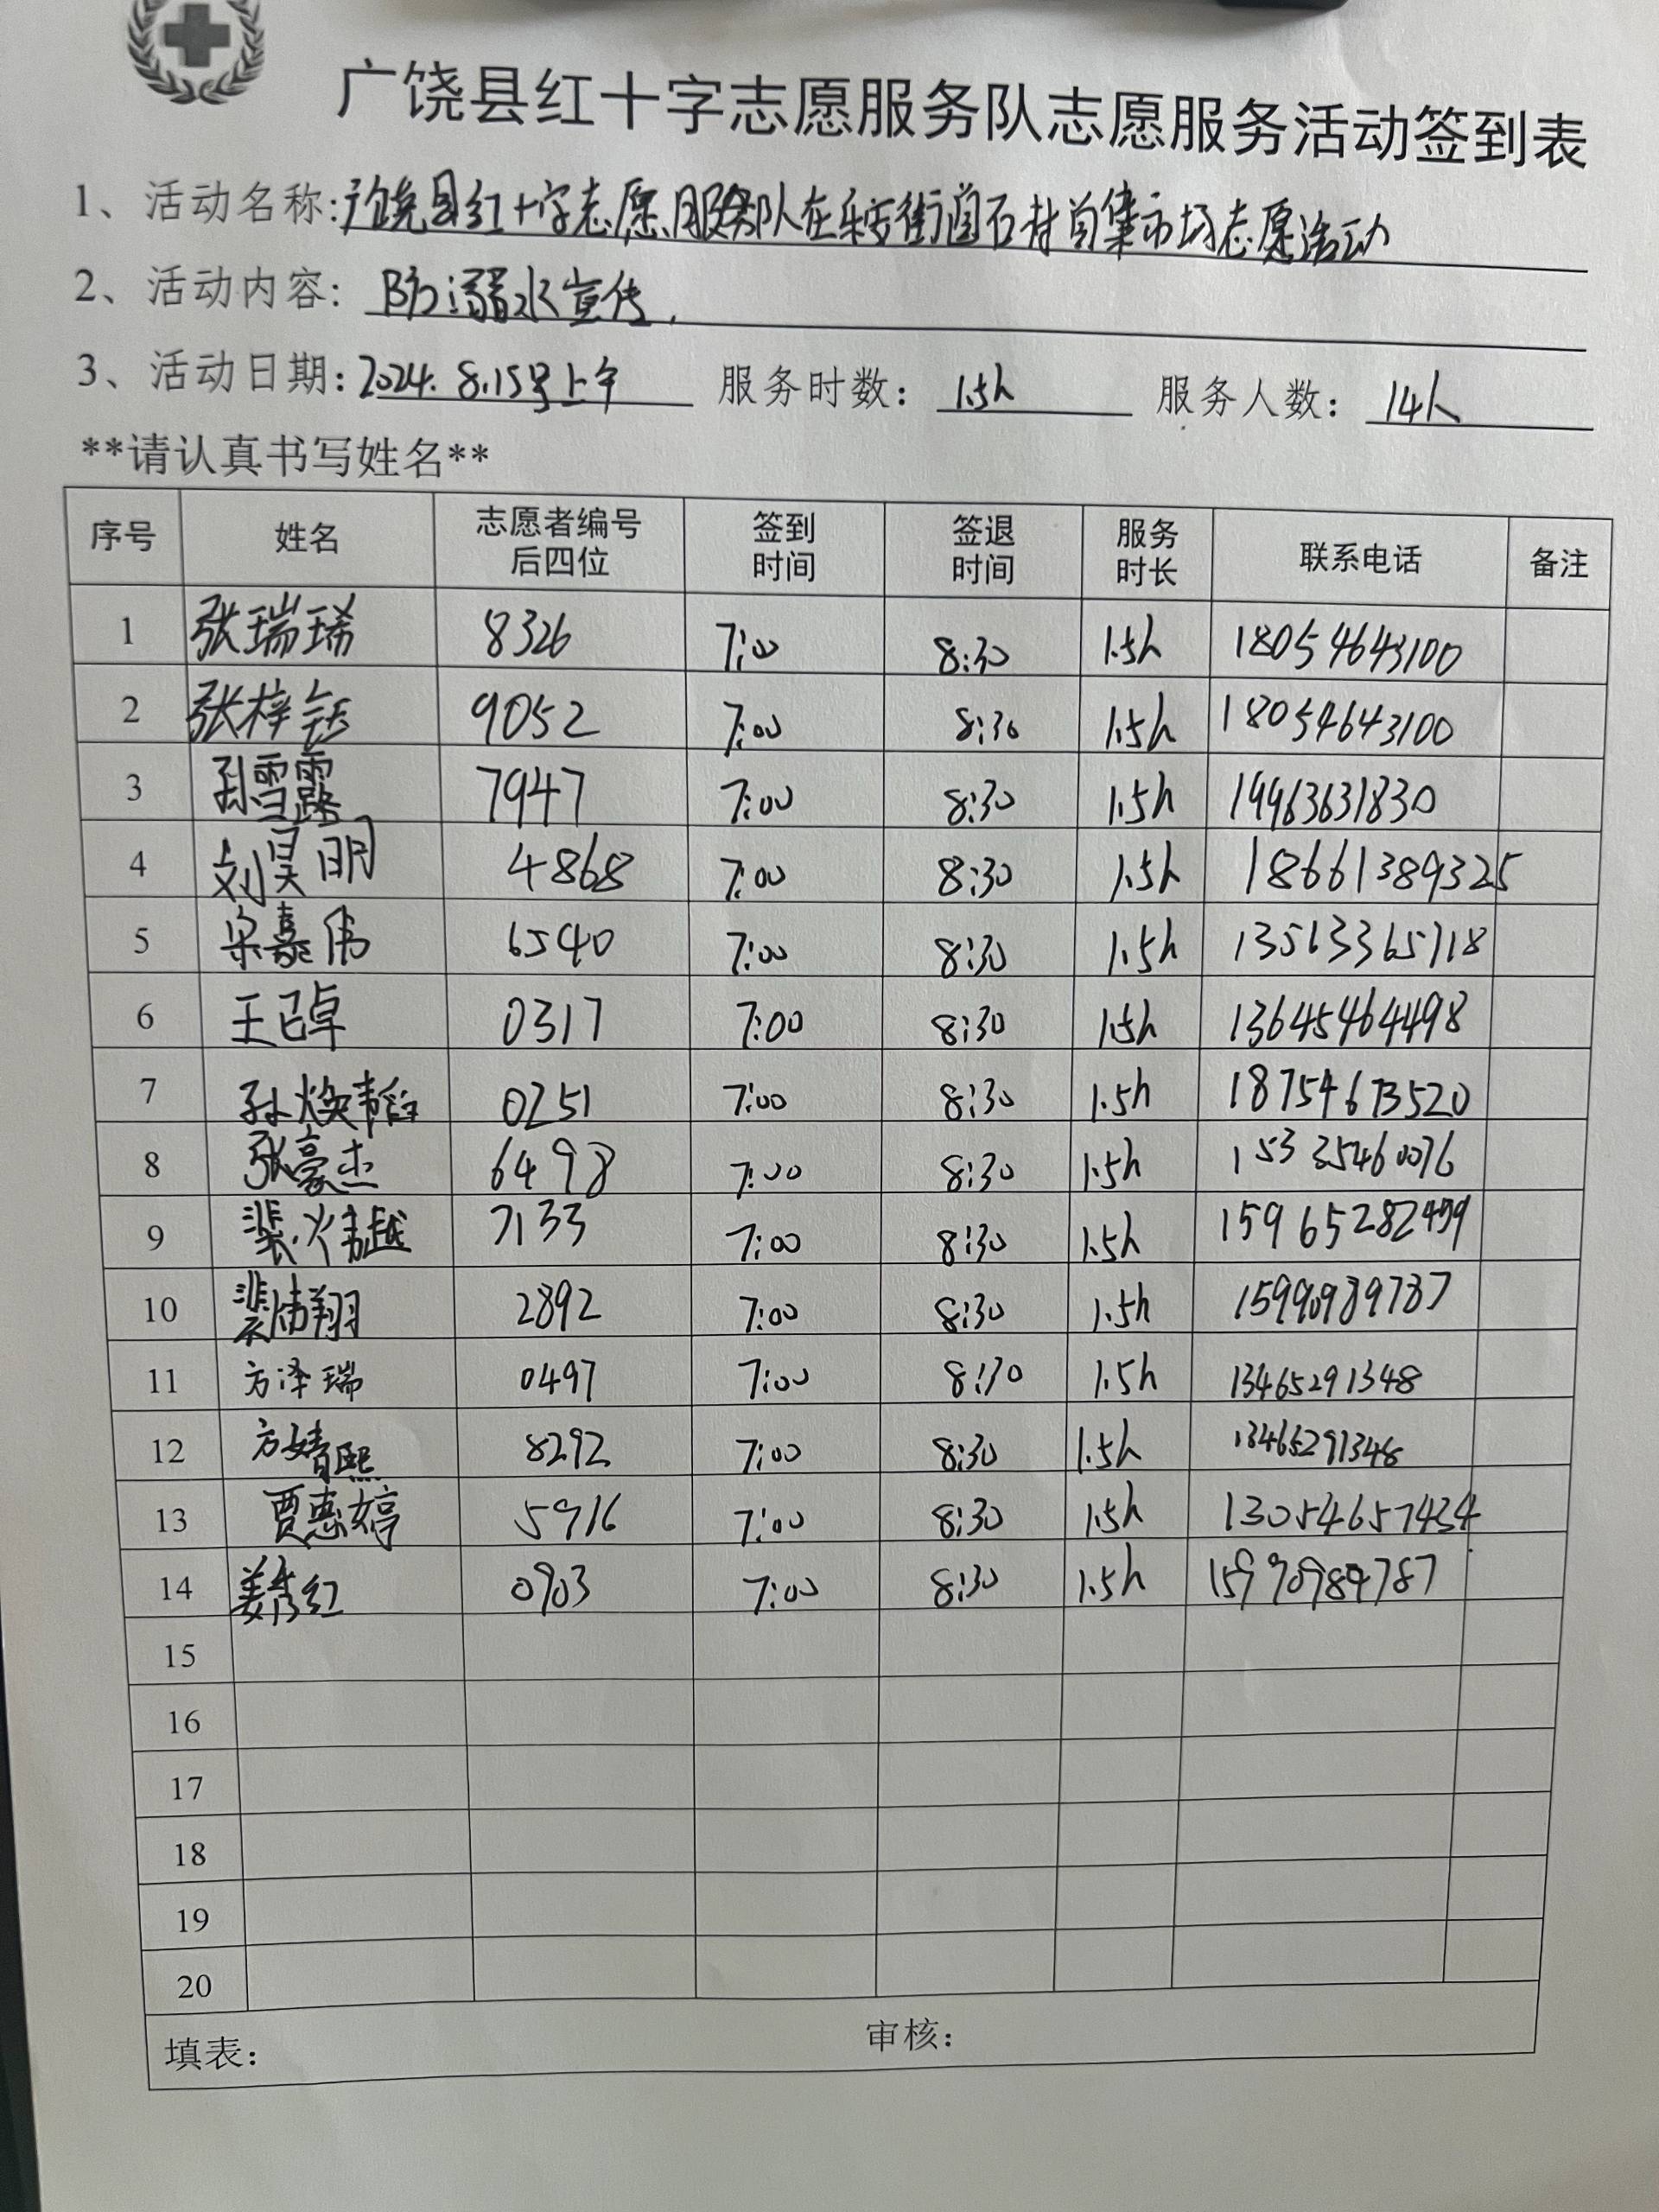 广饶县红十字志愿服务队志愿服务活动签到表
1、活动名称:广饶县红十字志愿服务队在乐安街道石村集市场志愿活动
2、活动内容: 防溺水宣传.
3、活动日期: 2024. 8.15号上午 服务时数: 1.5h 服务人数: 14人
**请认真书写姓名**
序号 姓名 志愿者编号后四位 签到时间 签退时间 服务时长 联系电话 备注
1 张瑞瑞 8326 7:00 8:30 1.5h 18054643100
2 张梓钰 9052 7:00 8:30 1.5h 18054643100
3 孙雪露 7947 7:00 8:30 1.5h 19963631830
4 刘昊明 4868 7:00 8:30 1.5h 18661389325
5 宋嘉伟 6540 7:00 8:30 1.5h 13563365718
6 王己卓 0317 7:00 8:30 1.5h 13645464498
7 孙焕韬 0251 7:00 8:30 1.5h 18754673520
8 张豪杰 6498 7:00 8:30 1.5h 15325460076
9 裴炜越 7133 7:00 8:30 1.5h 15965282499
10 裴炜翔 2892 7:00 8:30 1.5h 15990989787
11 方泽瑞 0497 7:00 8:30 1.5h 13465291348
12 方婧熙 8292 7:00 8:30 1.5h 13465291348
13 贾惠婷 5916 7:00 8:30 1.5h 13054657434
14 姜秀红 0903 7:00 8:30 1.5h 15990989787
15
16
17
18
19
20
填表: 审核: